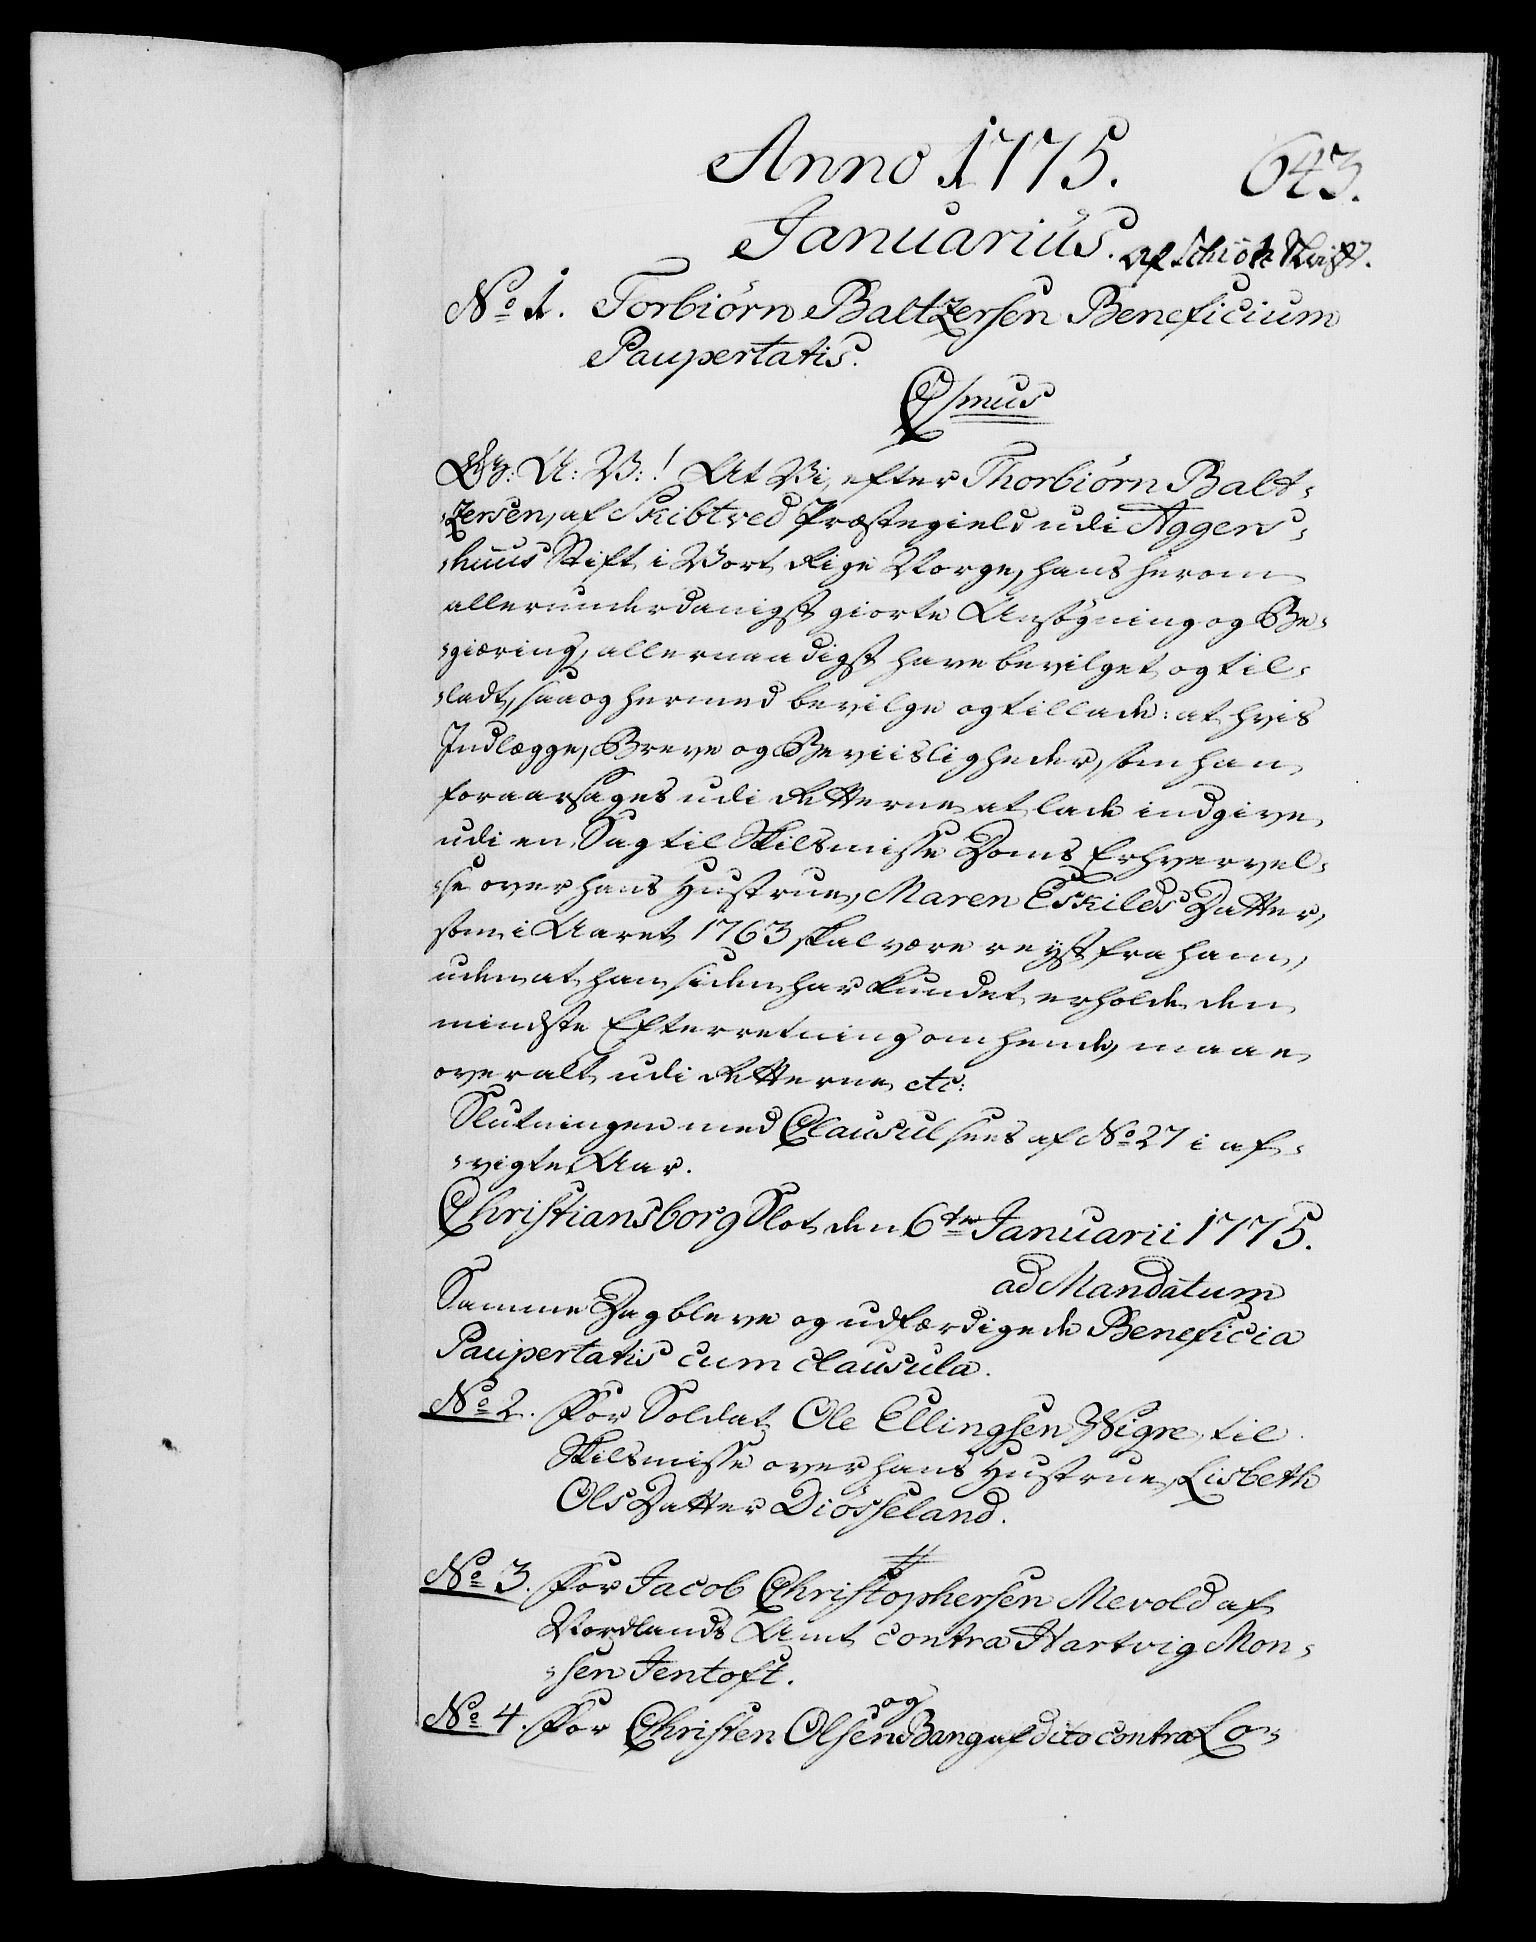 Anno 1775.
643.
Januarius.
No 1. Torbiörn Baltzersen Beneficium
Paupertatis.
Csmus
G: A: V:! At Vi, efter Thorbiörn Balt-
-zersen, af Skibtved Præstegield udi Aggers-
-huus Stift i Vort Rige Norge, hans herom
allerunderdanigst giorte Ansøgning og Be-
-giæring, allernaadigst have bevilget og til-
-ladt, saa og hermed bevilge og tillade: at hvis
Indlægge, Breve og Beviisligheder, som han
foraarsages udi Retterne at lade indgive
udi en Sag til Skilsmisse Doms Erhvervel-
-se over hans Hustrue, Maren Eskilds Datter,
som i Aaret 1763 skal være reyst fra ham,
uden at han siden har kundet erholde den
mindste Efterretning om hende, maae
overalt udi Retterne etc:
Slutningen med Clausul sees af No 27 i af-
-vigte Aar.
Christiansborg Slot den 6te Januarii 1775.
ad Mandatum
Samme Dag bleve og udfærdigede Beneficia
Paupertatis cum clausula.
No 2. For Soldat Ole Ellingsen Wigre, til
Skilsmisse over hans Hustrue, Lisbeth
Ols Datter Diösseland.
No 3. For Jacob Christophersen Mevold af
Nordlands Amt contra Hartvig Mon-
-sen Jentoft.
No 4. For Christen Olsen og Bang af dito contra Lo-